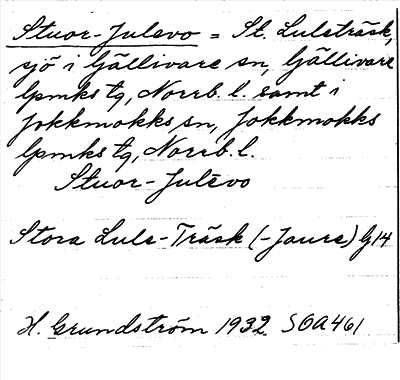 Stuor-Julevo = St. Luleträsk,
sjö i Gällivare sn, Gällivare
lpmks tg, Norrb. l. samt i
Jokkmokks sn, Jokkmokks
lpmks tg, Norrb. l.
Stuor-Julēvo
Stora Lule-Träsk (-Jaure) G14
H. Grundström 1932 SOA 461